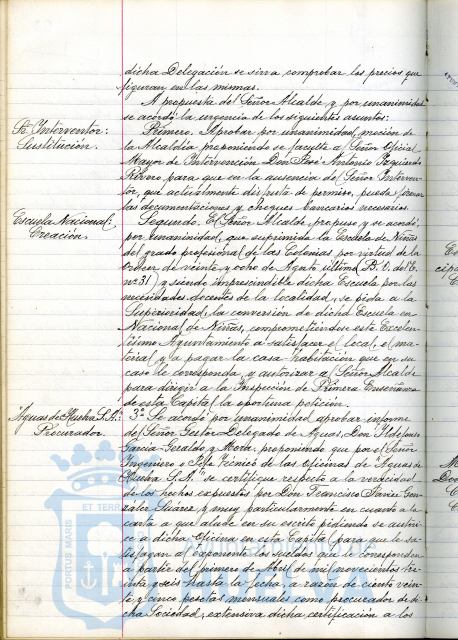 dicha Delegación se sirva comprobar los precios que
figuran en las mismas.
A propuesta del Señor Alcalde y por unanimidad
se acordó la urgencia de los siguientes asuntos:
Sr. Interventor:
Sustitución.
Primero. Aprobar por unanimidad, moción de
la Alcaldía proponiendo se faculte al Señor Oficial
Mayor de Intervención Don José Antonio Izquierdo
para que en la ausencia del Señor Interven-
tor, que actualmente disfruta de permiso, pueda firmar
las documentaciones y cheques bancarios necesarios.
Escuela Nacional:
Creación.
Segundo. El Señor Alcalde, propuso y se acordó,
por unanimidad, que suprimida la Escuela de Niñas
del grado profesional de las Colonias por virtud de la
orden de veinte y ocho de Agosto último (B. O. del E.
nº 31) y siendo imprescindible dicha Escuela por las
necesidades docentes de la localidad, se pida a la
Superioridad, la conversión de dicha Escuela en
Nacional de Niñas, comprometiéndose este Excelen-
tísimo Ayuntamiento a satisfacer el local, el ma-
terial y a pagar la casa habitación que en su
caso le corresponda, y autorizar al Señor Alcalde
para dirigir a la Inspección de Primera Enseñanza
de esta Capital la oportuna petición.
Aguas de Huelva S.A.:
Procurador.
3º Se acordó por unanimidad aprobar informe
del Señor Gestor Delegado de Aguas, Don Ildefonso
García-Geraldo y Mora, proponiendo que por el Señor
Ingeniero Jefe Técnico de las Oficinas de "Aguas de
Huelva S.A." se certifique respecto a la veracidad
de los hechos expuestos por Don Francisco Javier Gon-
zález Suárez y muy particularmente en cuanto a la
carta a que alude en su escrito pidiendo se autori-
ce a dicha Oficina en esta Capital para que le sa-
tisfagan al exponente los sueldos que le corresponden
a partir del primero de Abril de mil novecientos tre-
inta y seis hasta la fecha, a razón de ciento vein-
te y cinco pesetas mensuales como procurador de di-
cha Sociedad, extensiva dicha certificación a los
PORTUS MARIS
ET TERRAE